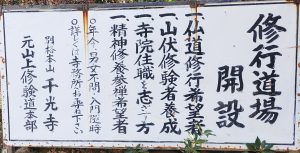 修行道場
開設
仏道修行希望者
一、山伏修験者養成
一、寺院住職を志す方
精神修養参禅希望者
○詳しくは寺務所にお尋ね下さい
別格本山 千光寺
元山上修験道本部